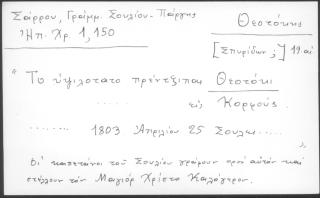 Σάρρου, Γράμμ. Σουλίου - Πάργης
Ἠπ. Χρ. 1, 150
Θεοτόκης
[Σπυρίδων ;] 19 αἰ
"Το ὑψιλοτατο πρέντζιπαι Θεοτόκι
....... τις Κορφούς.
........ 1803 Ἀπριλίου 25 Σουλι.....
Οἱ καπετάνοι τοῦ Σουλίου γράφουν πρός αὐτόν καί
στέλλουν τόν Μαγιόρ Χρίστο Καλόγερον.